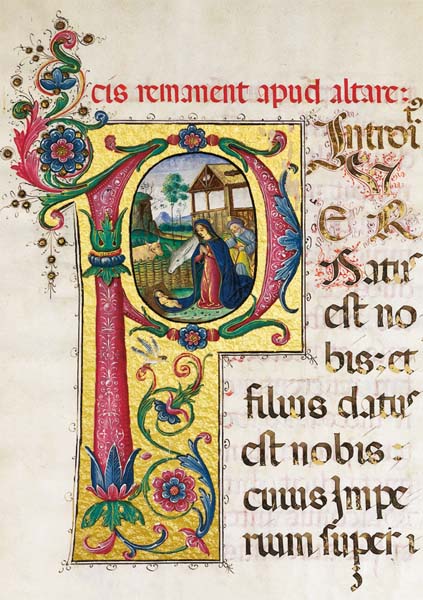 cis remanent apud altare:
Introit
P
V
E R
Natus
est no
bis: et
filius datus
est nobis:
cuius Impe
rium super